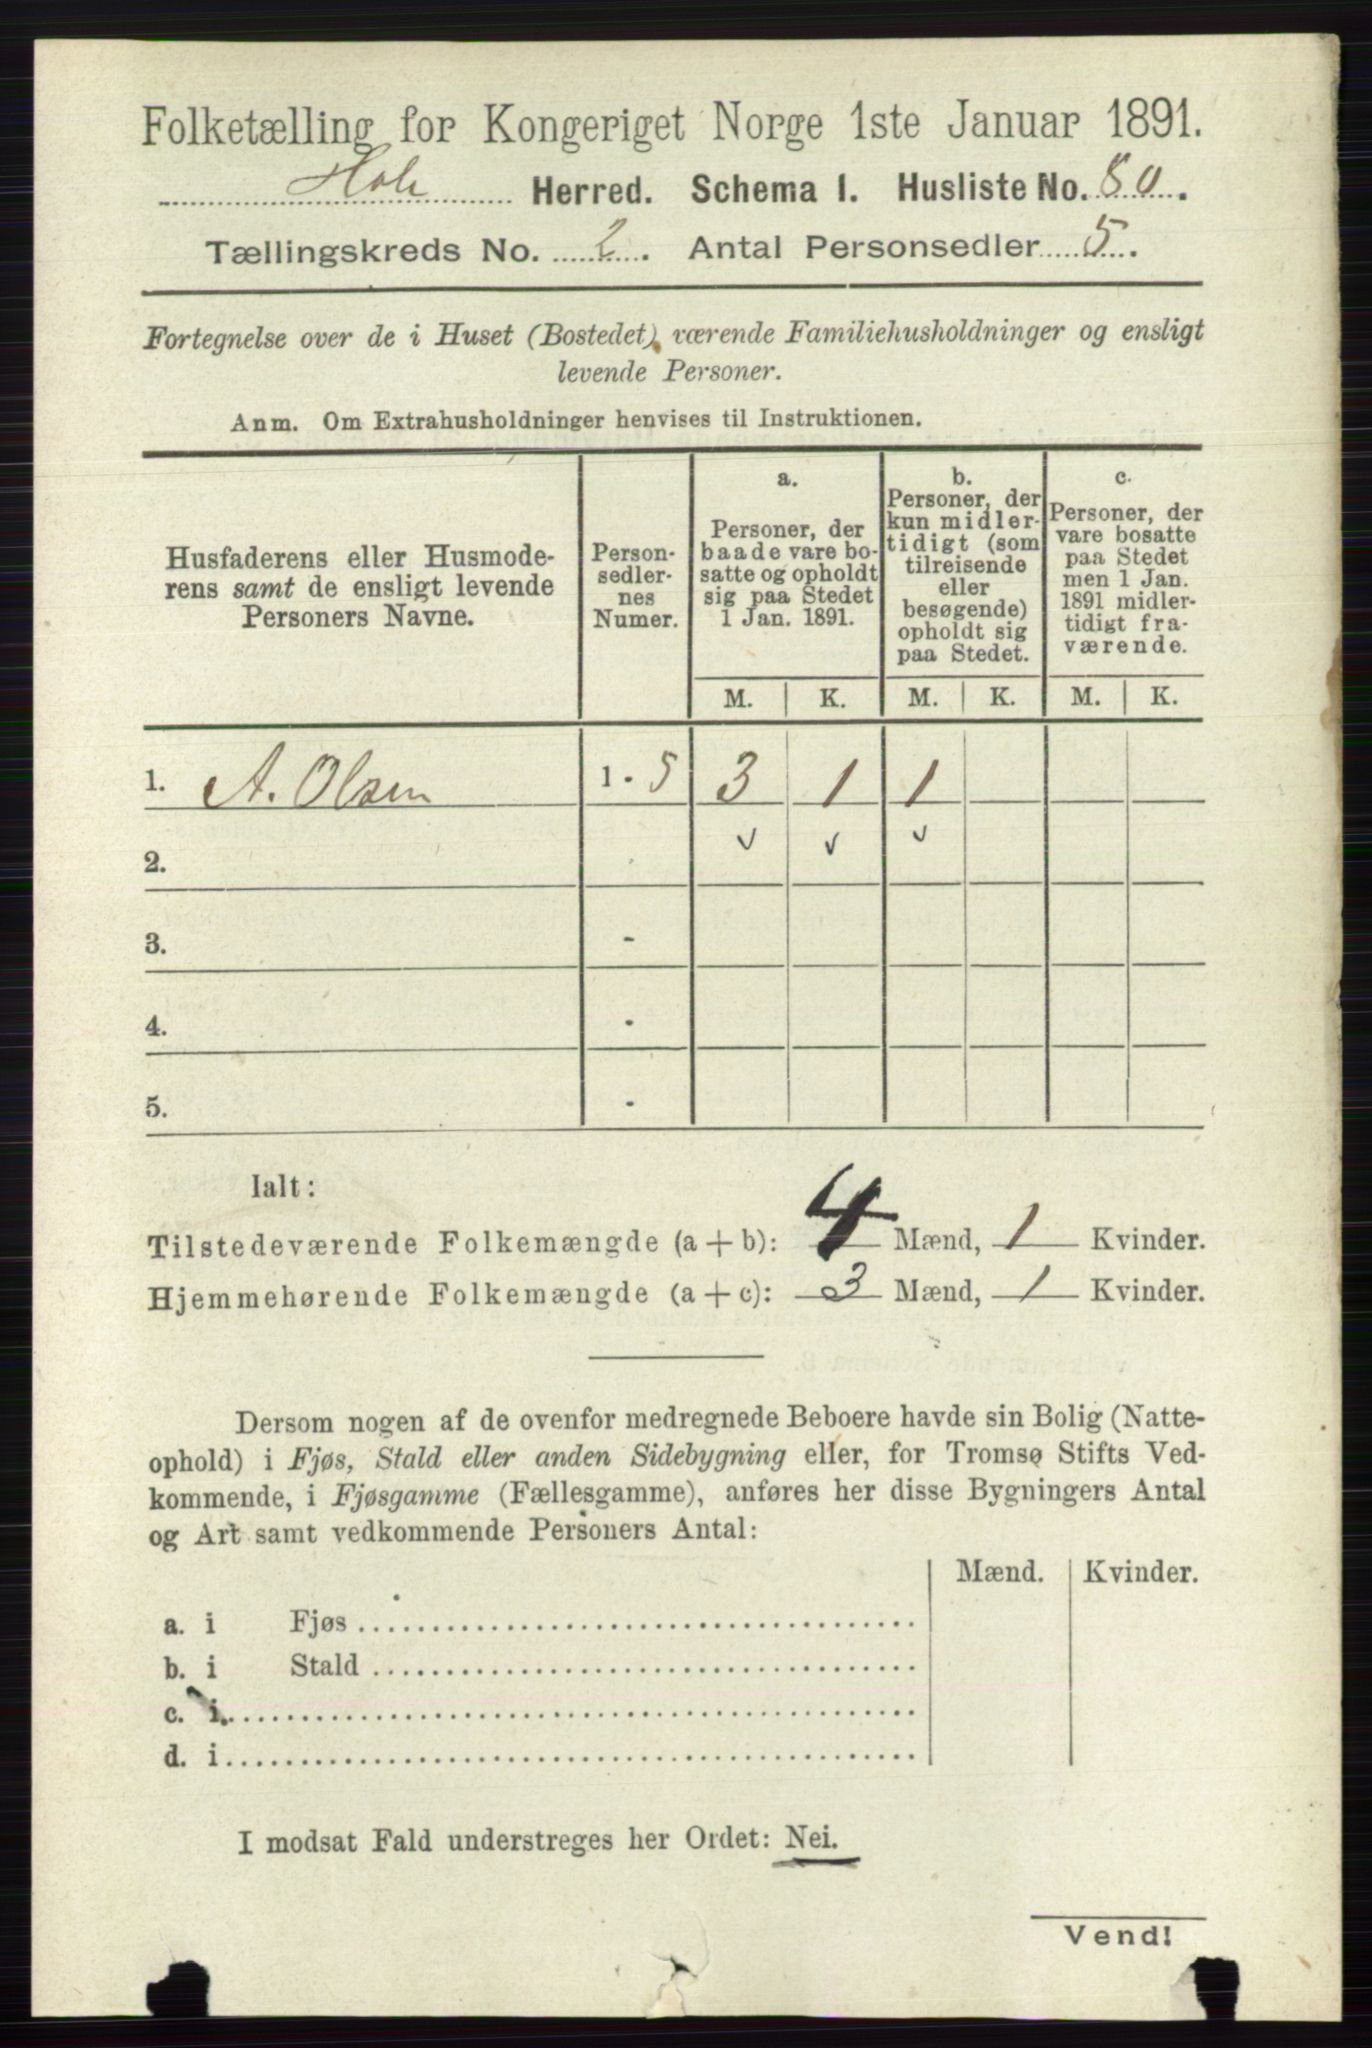 Folketælling for Kongeriget Norge 1ste Januar 1891.
Hole Herred. Schema I. Husliste No. 80.
Tællingskreds No. 2. Antal Personsedler 5.
Fortegnelse over de i Huset (Bostedet) værende Familiehusholdninger og ensligt
levende Personer.
Anm. Om Extrahusholdninger henvises til Instruktionen.
Husfaderens eller Husmode-
rens samt de ensligt levende
Personers Navne.
Person-
sedler-
nes
Numer.
a.
Personer, der
baade vare bo-
satte og opholdt
sig paa Stedet
1 Jan. 1891.
b.
Personer, der
kun midler-
tidigt (som
tilreisende
eller
besøgende)
opholdt sig
paa Stedet.
c.
Personer, der
vare bosatte
paa Stedet
men 1 Jan.
1891 midler-
tidigt fra-
værende.
M. K. M. K. M. K.
1. A. Olsen 1 - 5 3 1 1
2. -
3. -
4. -
5. -
Ialt:
Tilstedeværende Folkemængde (a + b): 4 Mænd, 1 Kvinder.
Hjemmehørende Folkemængde (a + c): 3 Mænd, 1 Kvinder.
Dersom nogen af de ovenfor medregnede Beboere havde sin Bolig (Natte-
ophold) i Fjøs, Stald eller anden Sidebygning eller, for Tromsø Stifts Ved-
kommende, i Fjøsgamme (Fællesgamme), anføres her disse Bygningers Antal
og Art samt vedkommende Personers Antal:
Mænd. Kvinder.
a. i Fjøs
b. i Stald
c. i
d. i
I modsat Fald understreges her Ordet: Nei.
Vend!